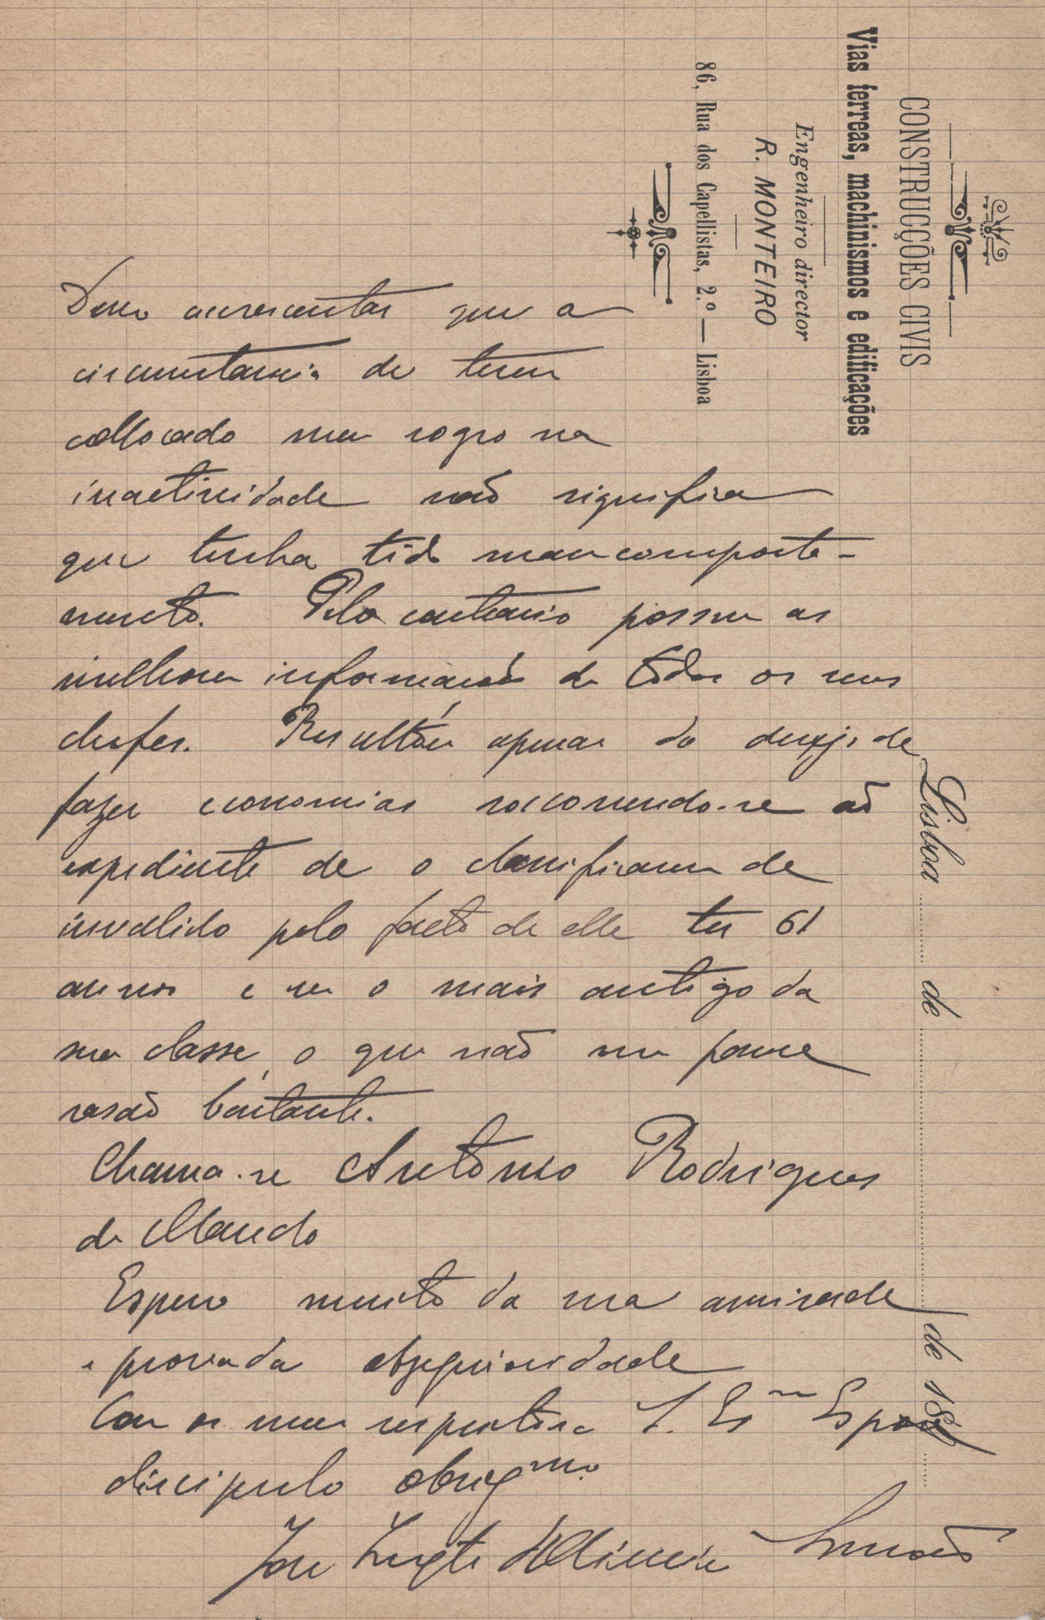 CONSTRUCÇÕES CIVIS
Vias ferreas, machinismos e edificações
Engenheiro director
R. MONTEIRO
86, Rua dos Capellistas, 2.º — Lisboa
Lisboa de de 18
Devo accrescentar que a
circumstancia de terem
collocado meu sogro na
inactividade não significa
que tenha tido mau comporta-
mento. Pelo contrario possue as
melhores informações de todos os seus
chefes. Resultou apenas do desejo de
fazer economias soccorrendo-se ao
expediente de o classificarem de
invalido pelo facto de elle ter 61
annos e ser o mais antigo da
sua classe, o que não me parece
rasão bastante.
Chama-se Antonio Rodrigues
de Macedo
Espero muito da sua amisade
e provada obsequiosidade
Com os meus respeitos a S. Ex.ma Esposa
discipulo obrig.mo
José d'Oliveira Simões